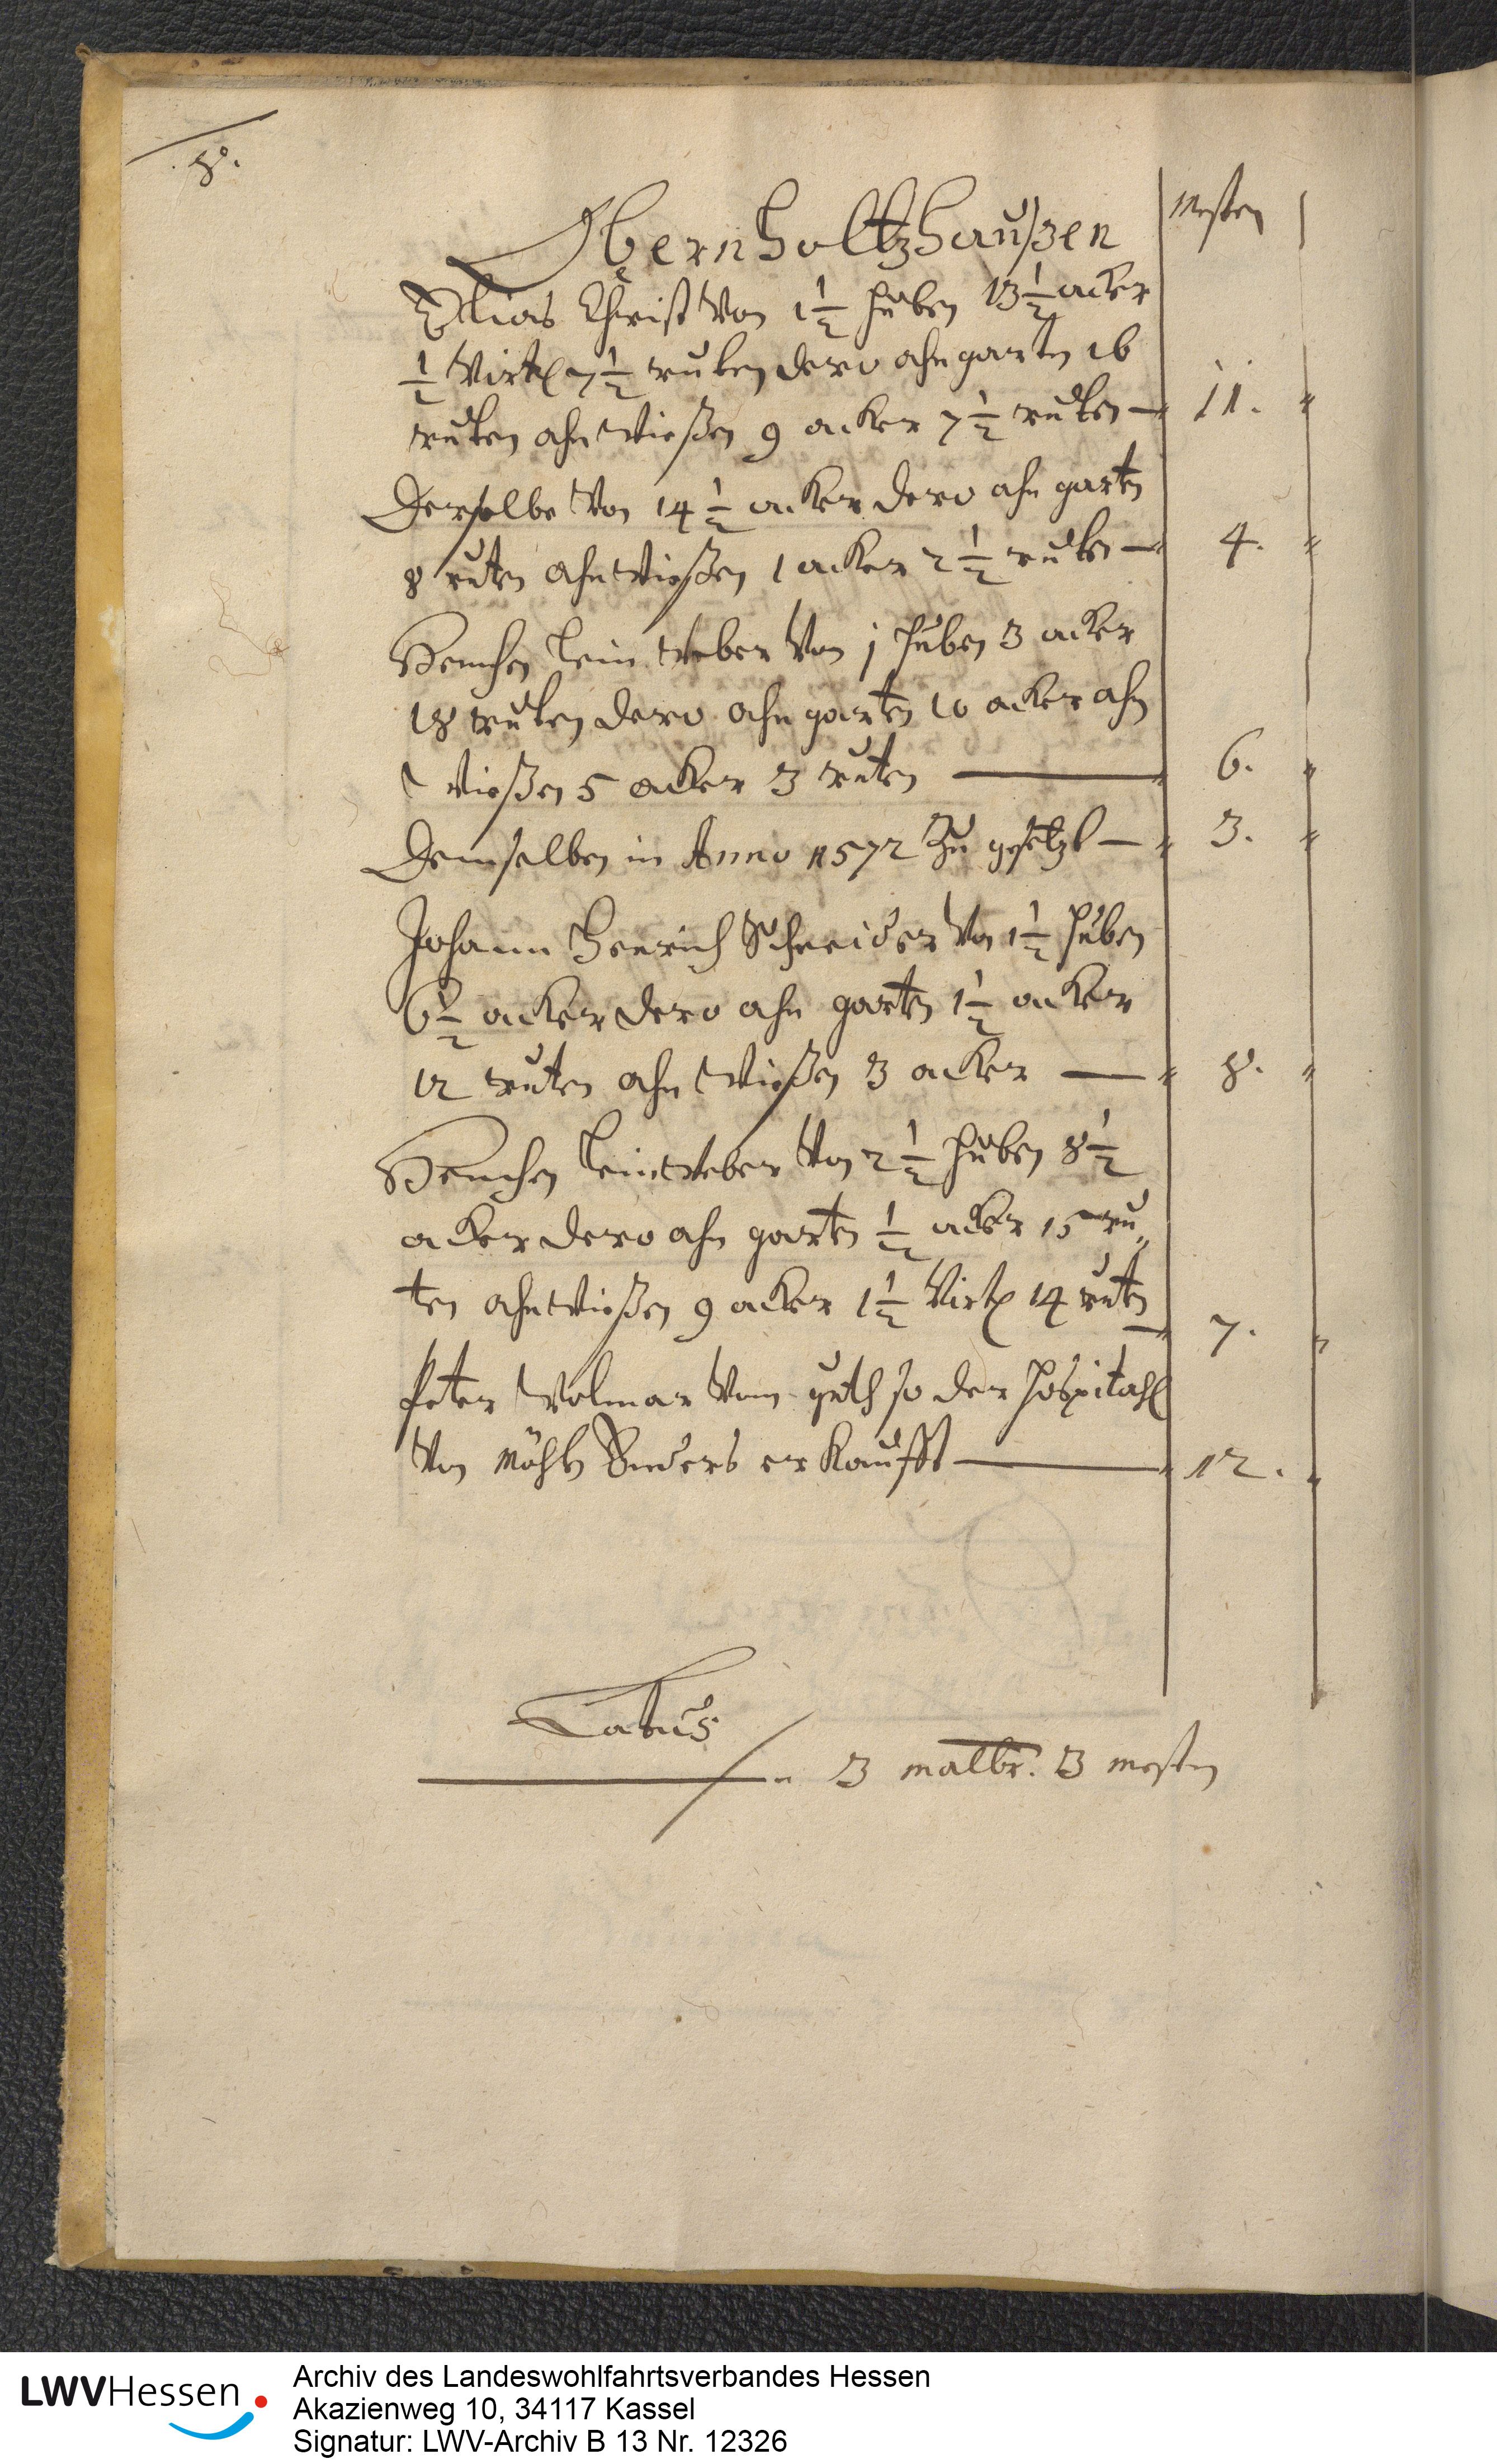 8.
Mesten
Obernholtzhaußen
Elias Christ Von 1 1/2 huben 13 1/2 acker
1/2 Virtel 7 1/2 ruten dero ahn garten 16
ruten ahn Wießen 9 acker 7 1/2 ruten — 11.
Derselbe Von 14 1/2 acker dero ahn garten
8 ruten ahn Wießen 1 acker 2 1/2 ruten — 4.
Henchen leinweber Von j huben 3 acker
18 ruten dero ahn garten 10 acker ahn
Wießen 5 acker 3 ruten — 6.
Demselben in Anno 1572 Zu gesetzt — 3.
Johann Henrich Schneider Von 1 1/2 huben
6 1/2 acker dero ahn garten 1 1/2 acker
12 ruten ahn Wießen 3 acker — 8.
Henchen leinweber Von 2 1/2 huben 8 1/2
acker dero ahn garten 1/2 acker 15 ru„
ten ahn Wießen 9 acker 1 1/2 Virtel 14 ruten
— 7.
Peter Volmar Vom guth so der hospitahl
Von erkaufft — 12.
Latus
3 maltr. 3 mesten
LWVHessen
Archiv des Landeswohlfahrtsverbandes Hessen
Akazienweg 10, 34117 Kassel
Signatur: LWV-Archiv B 13 Nr. 12326